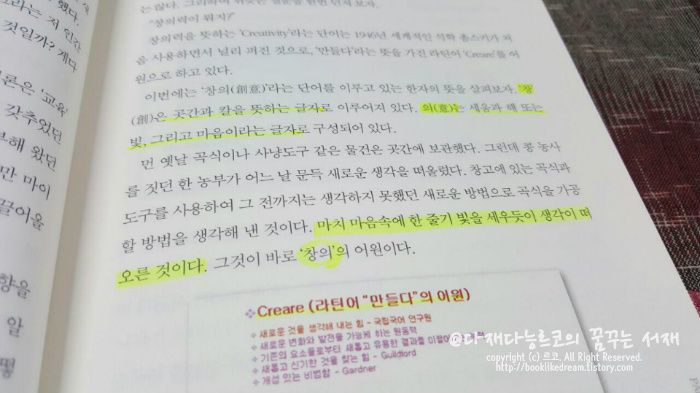 했다.
라는 저 인간
것일까? 게다
론은 '교육'
갖추었던
부해 왔던
만 마이
끌어올
향을
알
떻
"창의력이 뭐지?"
창의력을 뜻하는 'Creativity'라는 단어는 1946년 세계적인 석학 촘스키가 처
음 사용하면서 널리 퍼진 것으로, '만들다'라는 뜻을 가진 라틴어 'Creare'를 어
원으로 하고 있다.
이번에는 '창의(創意)'라는 단어를 이루고 있는 한자의 뜻을 살펴보자. '창
(創)은 곳간과 칼을 뜻하는 글자로 이루어져 있다. 의(意)는 세움과 해 또는
빛, 그리고 마음이라는 글자로 구성되어 있다.
먼 옛날 곡식이나 사냥도구 같은 물건은 곳간에 보관했다. 그런데 콩 농사
를 짓던 한 농부가 어느 날 문득 새로운 생각을 떠올렸다. 창고에 있는 곡식과
도구를 사용하여 그 전까지는 생각하지 못했던 새로운 방법으로 곡식을 가공
할 방법을 생각해 낸 것이다. 마치 마음속에 한 줄기 빛을 세우듯이 생각이 떠
오른 것이다. 그것이 바로 '창의'의 어원이다.
Creare (라틴어 "만들다"의 어원)
새로운 것을 생각해 내는 힘 - 국립국어 연구원
새로운 변화와 발전을 가능케 하는 원동력
기존의 요소들로부터 새롭고 유용한 결과를
새롭고 신기한 것을 찾는 힘 - Guildford
개성 있는 비범함 - Gardner
@다재다능르코의 꿈꾸는 서재
copyright (c) 르코. All Right Reserved.
http://booklikedream.tistory.com